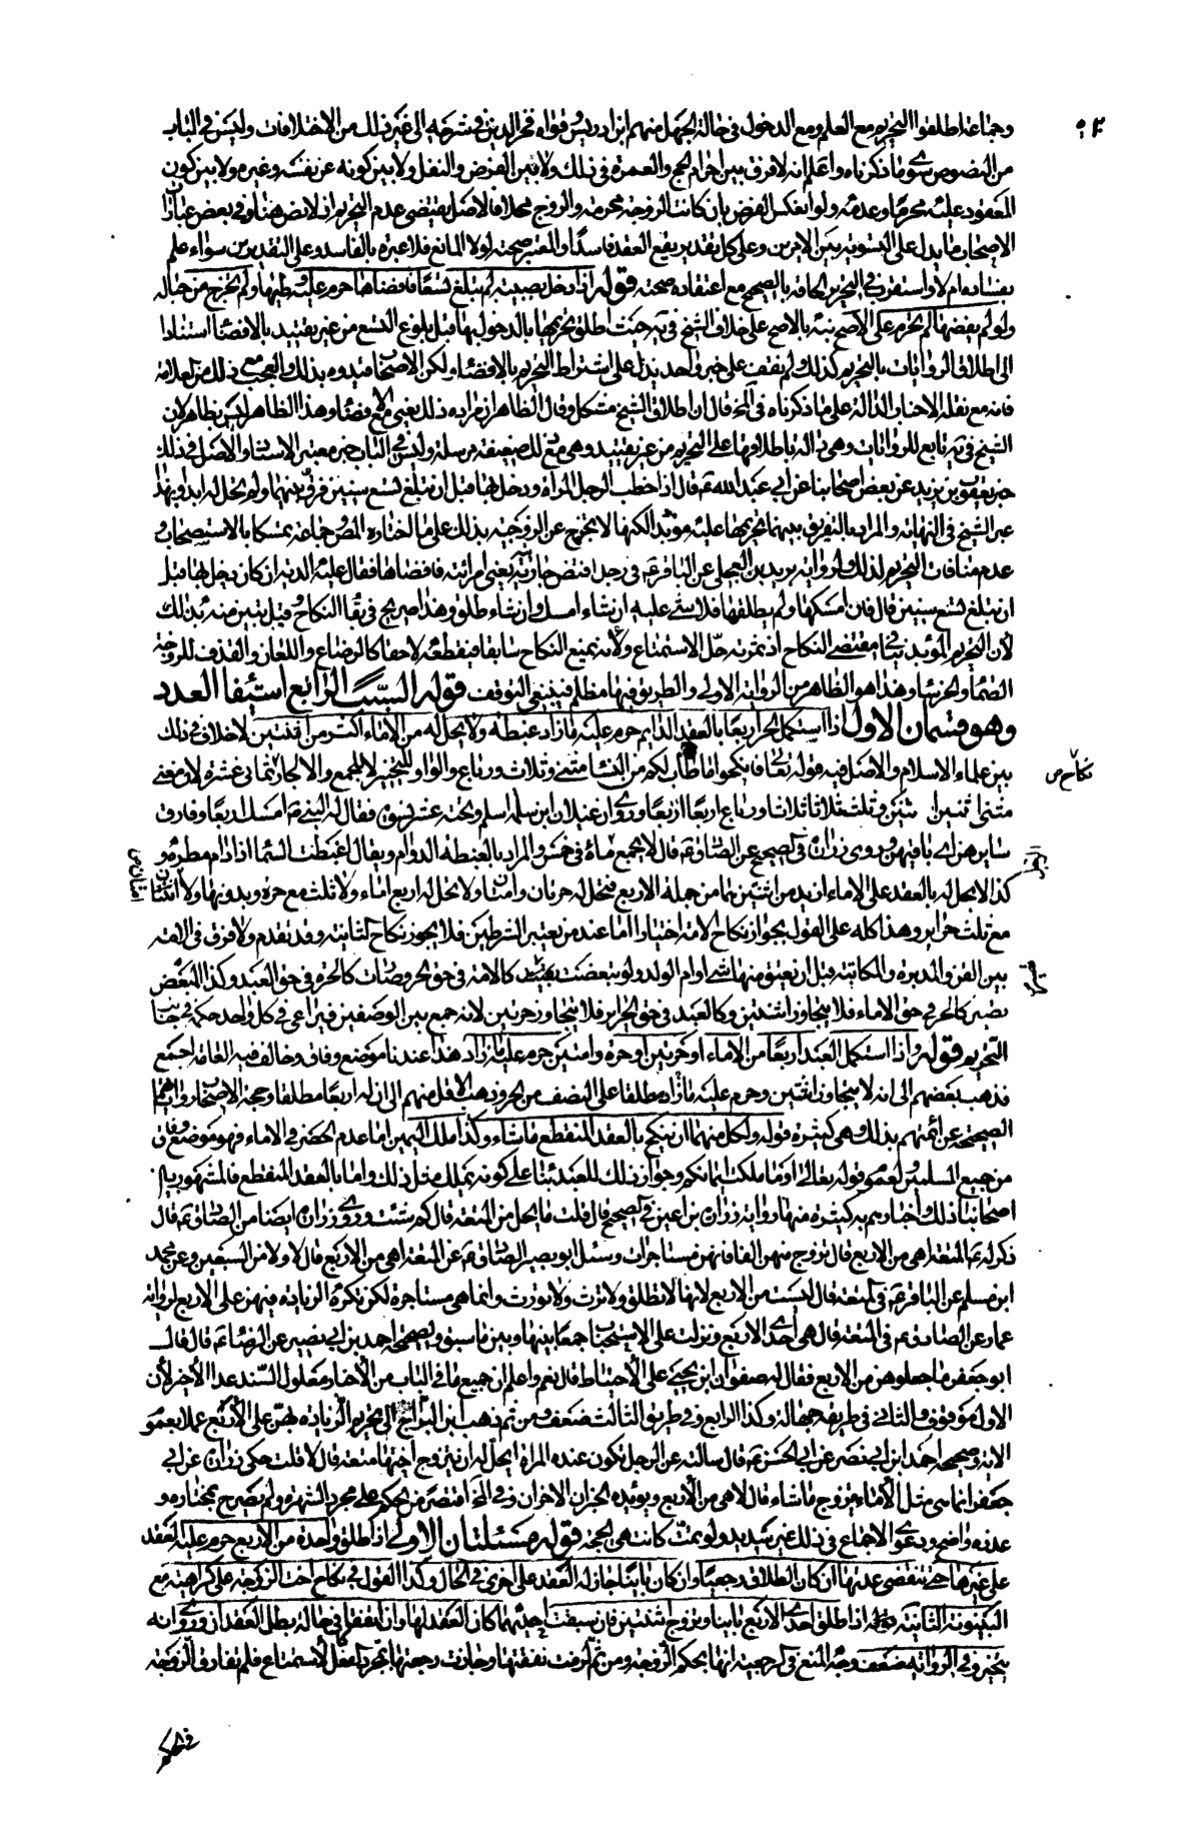 وجماعة اطلقوا التحريم مع العلم ومع الدخول في حالة الجهل منهم ابن ادريس وقواه فخر الدين في شرحه الى غير ذلك من الاختلافات وليس في الباب
من النصوص سوى ما ذكرناه واعلم انه لا فرق بين احرام الحج والعمرة في ذلك ولا بين الفرض والنفل ولا بين كونه عن نفسه وغيره ولا بين كون
المعقود عليه محرما وعدمه ولو انعكس الفرض بان كانت الزوجة محرمة والزوج محلا فالاصل يقتضي عدم التحريم اذ لا نص هنا وفي بعض عبارات
الاصحاب ما يدل على التسوية بين الامرين وعلى كل تقدير يقع العقد فاسدا والمعتبر صحته لولا المانع فلا عبرة بالفاسد وعلى التقديرين سواء علم
بفساده ام لا واستقرب في التحرير الحاقه بالصحيح مع اعتقاده صحته قوله اذا دخل بصبية لم تبلغ تسعا فافضاها حرم عليه وطيها ولم تخرج من حباله
ولو لم يفضها لم تحرم على الاصح نبه بالاصح على خلاف الشيخ في يه حيث اطلق تحريمها بالدخول بها قبل بلوغ التسع من غير تقييد بالافضا استنادا
الى اطلاق الروايات بالتحريم كذلك ولم نقف على خبر واحد يدل على اشتراط التحريم بالافضاء ولكن الاصحاب قيدوه بذلك والعجب مع ذلك من العلامة
فانه مع نقله الاخبار الدالة على ما ذكرناه في لف قال ان اطلاق الشيخ مشكل وقال الظاهر ان مراده ذلك يعني مع الافضاء وهذا الظاهر ليس بظاهر لان
الشيخ في يه تابع للروايات وهي دالة باطلاقها على التحريم من غير تقييد وهي مع ذلك ضعيفة مرسلة وليس في الباب خبر معتبر الاسناد والاصل في ذلك
خبر يعقوب بن يزيد عن بعض اصحابنا عن ابي عبد الله ع قال اذا خطب الرجل المراة ودخل بها قبل ان تبلغ تسع سنين فرق بينهما ولم تحل له ابدا وبهذا
عبر الشيخ في النهاية والمراد بالتفريق بينهما تحريمها عليه مؤبدا لكنها لا تخرج عن الزوجية بذلك على ما اختاره المص وجماعة تمسكا بالاستصحاب و
عدم منافات التحريم لذلك ولرواية بريد بن العجلي عن الباقر ع في رجل افتض جارية يعني امراته فافضاها فقال عليه الدية ان كان دخل بها قبل
ان تبلغ تسع سنين قال فان امسكها ولم يطلقها فلا شيء عليه ان شاء امسك وان شاء طلق وهذا صريح في بقاء النكاح وقيل تبين منه بذلك
لان التحريم المؤبد ينافي مقتضى النكاح اذ ثمرته حل الاستمتاع ولانه يمنع النكاح سابقا فيقطعه لاحقا كالرضاع واللعان والقذف للزوجة
الصماء والخرساء وهذا هو الظاهر من الرواية الاولى والطريق فيها مظلم فينبغي التوقف قوله السبب الرابع استيفاء العدد
وهو قسمان الاول اذا استكمل الحر اربعا بالعقد الدايم حرم عليه ما زاد غبطة ولا يحل له من الاماء اكثر من اثنتين لا خلاف في ذلك
بين علماء الاسلام والاصل فيه قوله تعالى فانكحوا ما طاب لكم من النساء مثنى وثلاث ورباع والواو للتخيير لا للجمع والا لجاز ثماني عشرة لان معنى
مثنى اثنين اثنين وثلث ثلاثا ثلاثا ورباع اربعا اربعا وروى ان غيلان ابن سلمة اسلم وتحته عشر نسوة فقال له النبي ص امسك اربعا وفارق
سايرهن اي باقيهن وروى زرارة في الصحيح عن الصادق ع قال لا يجمع ماءه في خمس والمراد بالغبطة الدوام ويقال اغبطت السماء اذا دام مطرها و
كذا لا يحل له بالعقد على الاماء ازيد من اثنتين هما من جملة الاربع فتحل له حرتان وامتان ولا تحل له اربع اماء ولا ثلث مع حرة وبدونها ولا امتان
مع ثلث حراير وهذا كله على القول بجواز نكاح الامة اختيارا اما عند من يعتبر الشرطين فلا يجوز نكاح الثانية وقد تقدم ولا فرق في الامة
بين القن والمدبرة والمكاتبة قبل ان يعتق منها شيء وام الولد ولو تبعضت كالامة في حق الحر وكالحرة في حق العبد وكذا المبعض
يصير كالحر في حق الاماء فلا يتجاوز اثنتين وكالعبد في حق الحراير فلا يتجاوز حرتين لانه جمع بين الوصفين فيراعى في كل واحد حكمه في جانب
التحريم قوله واذا استكمل العبد اربعا من الاماء او حرتين او حرة وامتين حرم عليه ما زاد هذا عندنا موضع وفاق وخالف فيه العامة اجمع
فذهب بعضهم الى انه لا يتجاوز اثنتين وحرم عليه ما زاد مطلقا على النصف من الحر وذهب الاقل منهم الى ان له اربعا مطلقا وحجة الاصحاب رواياتهم
الصحيحة عن ائمتهم بذلك وهي كثيرة قوله ولكل منهما ان ينكح بالعقد المنقطع ما شاء وكذا ملك اليمين اما عدم الحصر في الاماء فهو موضع وفاق
من جميع المسلمين لعموم قوله تعالى او ما ملكت ايمانكم وجواز ذلك للعبد بناء على كونه يملك مثل ذلك واما بالعقد المنقطع فالمشهور بين
اصحابنا ذلك واخبارهم به كثيرة منها رواية زرارة بن اعين في الصحيح قال قلت ما يحل من المتعة قال كم شئت وروى زرارة ايضا من الصادق ع قال
ذكر له المتعة اهي من الاربع قال تزوج منهن الفا فانهن مستاجرات وسئل ابو بصير الصادق ع عن المتعة اهي من الاربع قال لا ولا من السبعين وعن محمد
ابن مسلم عن الباقر ع في المتعة قال ليست من الاربع لانها لا تطلق ولا ترث ولا تورث وانما هي مستاجرة لكن تكره الزيادة فيهن على الاربع لرواية
عمار عن الصادق ع في المتعة قال هي احدى الاربع ونزلت على الاستحباب جمعا بينها وبين ما سبق ولصحيحة احمد بن ابي نصر عن الرضا ع قال قال
ابو جعفر ع اجعلوهن من الاربع فقال له صفوان ابن يحيى على الاحتياط قال نعم واعلم ان جميع ما في الباب من الاخبار معلول السند عدا الاخير لان
الاول موقوف والثاني في طريقه جهالة وكذا الرابع وفي طريق الثالث ضعف ومن ثم ذهب ابن البراج الى تحريم الزيادة بهن على الاربع عملا بعموم
الاية وصحيحة احمد ابن ابي نصر عن ابي الحسن ع قال سالته عن الرجل تكون عنده المراة ايحل له ان يتزوج اختها متعة قال لا قلت حكى زرارة عن ابي
جعفر انما هي مثل الاماء يتزوج ما شاء قال لا هي من الاربع ويؤيده الخبران الاخران وفي لف اقتصر من الحكم على مجرد الشهرة ولم يصرح بمختاره و
عذره واضح ودعوى الاجماع في ذلك غير سديد ولو تمت كانت هي الحجة قوله مسئلتان الاولى اذا طلق واحدة من الاربع حرم عليه العقد
على غيرها حتى تنقضي عدتها ان كان الطلاق رجعيا وان كان باينا جاز له العقد على اخرى في الحال وكذا القول في نكاح اخت الزوجة على كراهية مع
البينونة الثانية اذا طلق احدى الاربع باينا وتزوج اثنتين فان سبقت احديهما كان العقد لها وان اتفقتا في حالة بطل العقدان وروى انه
يتخير وفي الرواية ضعف وجه المنع في الرجعية انها بحكم الزوجة ومن ثم لزمت نفقتها وجازت رجعتها بمجرد الفعل كالاستمتاع فلم تفارق الزوجة